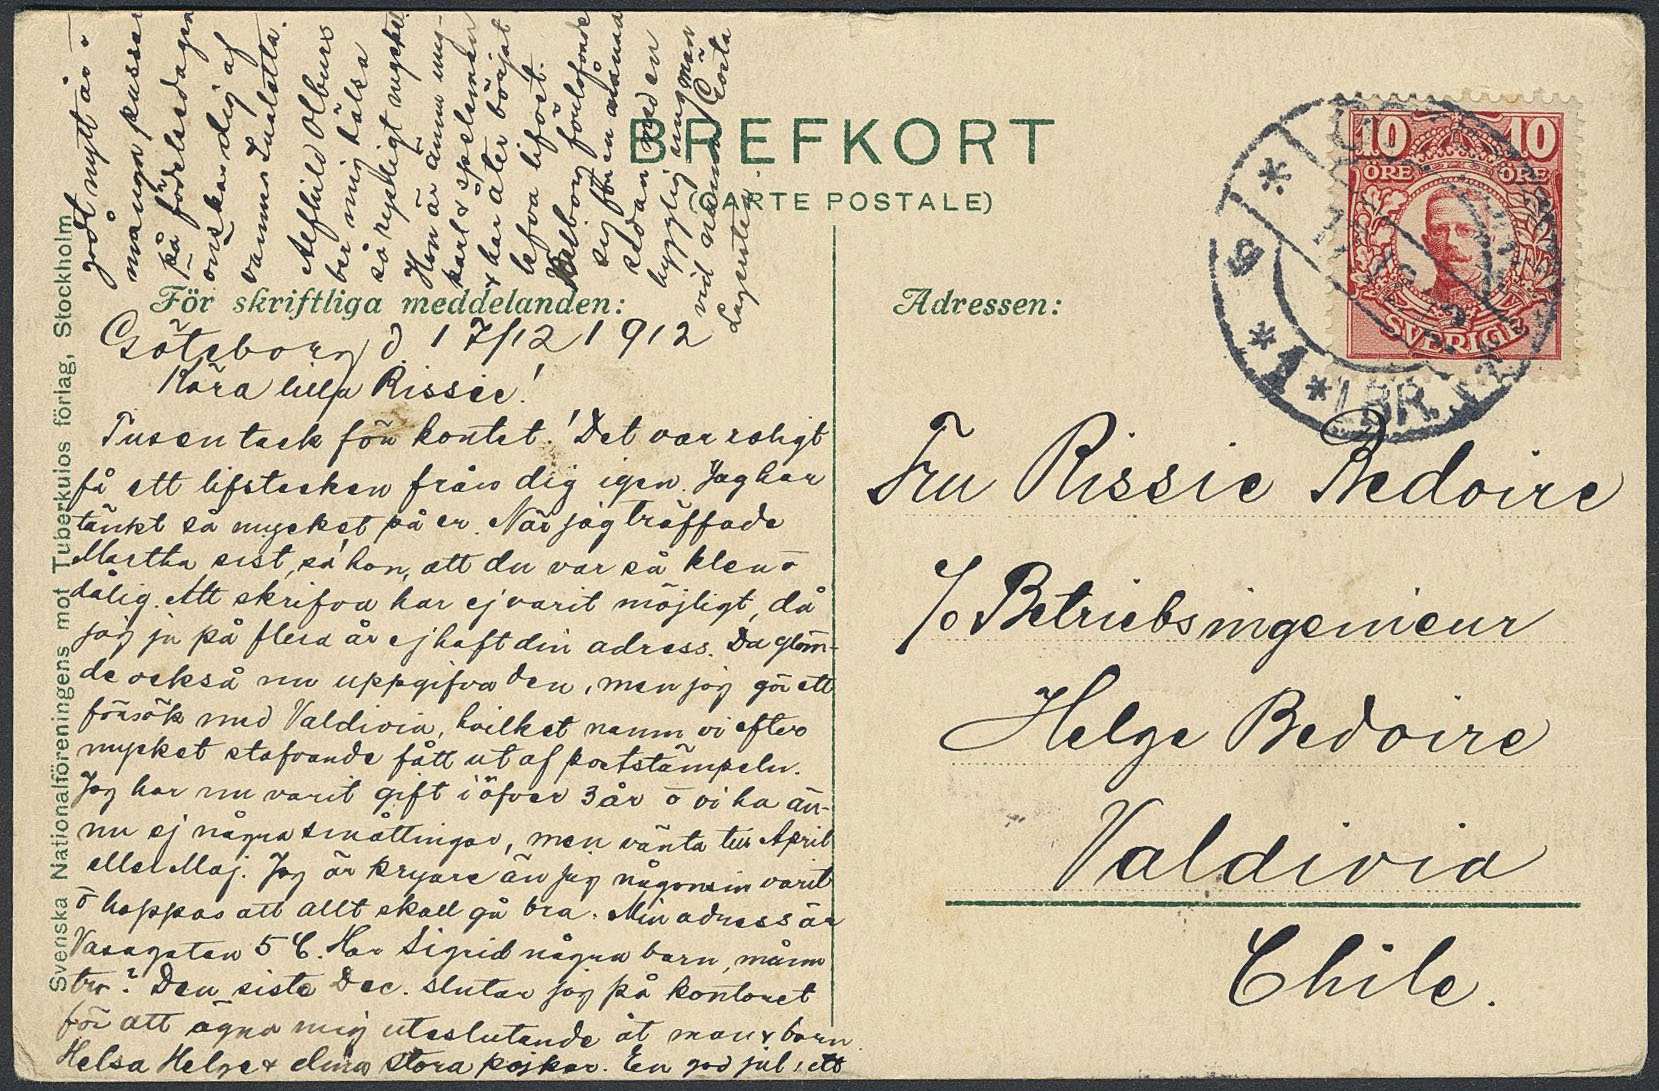 BREFKORT
(CARTE POSTALE)
För skriftliga meddelanden:
Adressen:
Svenska Nationalföreningens mot Tuberkulos förlag, Stockholm
10 10
ÖRE ÖRE
SVERIGE
*1.BR.
Göteborg d 17/12 1912
Kära lilla Rissie!
Tusen tack för kortet! Det var roligt
få ett lifstecken från dig igen. Jag har
tänkt så mycket på er. När jag träffade
Martha sist, sa' hon, att du var så klen o
dålig. Att skrifva har ej varit möjligt, då
jag ju på flera år ej haft din adress. Du glöm-
de också nu uppgifva den, men jag gör ett
försök med Valdivia, hvilket namn vi efter
mycket stafvande fått ut af poststämpeln.
Jag har nu varit gift i öfver 3 år o vi ha än-
nu ej några småttingar, men vänta till April
eller Maj. Jag är kryare än jag någonsin varit
o hoppas att allt skall gå bra. Min adress är
Vasagatan 5 C. Har Sigrid några barn, månn
tro? Den siste Dec. slutar jag på kontoret
för att ägna mig uteslutande åt man & barn.
Helsa Helge & dina stora pojkar. En god jul, ett
godt nytt år o
många kyssar
på födelsedagen
önskar dig af
varma
Alfhild
ber mig hälsa
så rysligt mycket.
Hon är ännu ung-
karl & spelman
& har åter börjat
lefva lifvet.
Valborg förlofvade
sig för en månad
sedan med en
hygglig ung man
vid namn Gösta
Fru Rissie Bedoire
c/o Betriebsingenieur
Helge Bedoire
Valdivia
Chile.